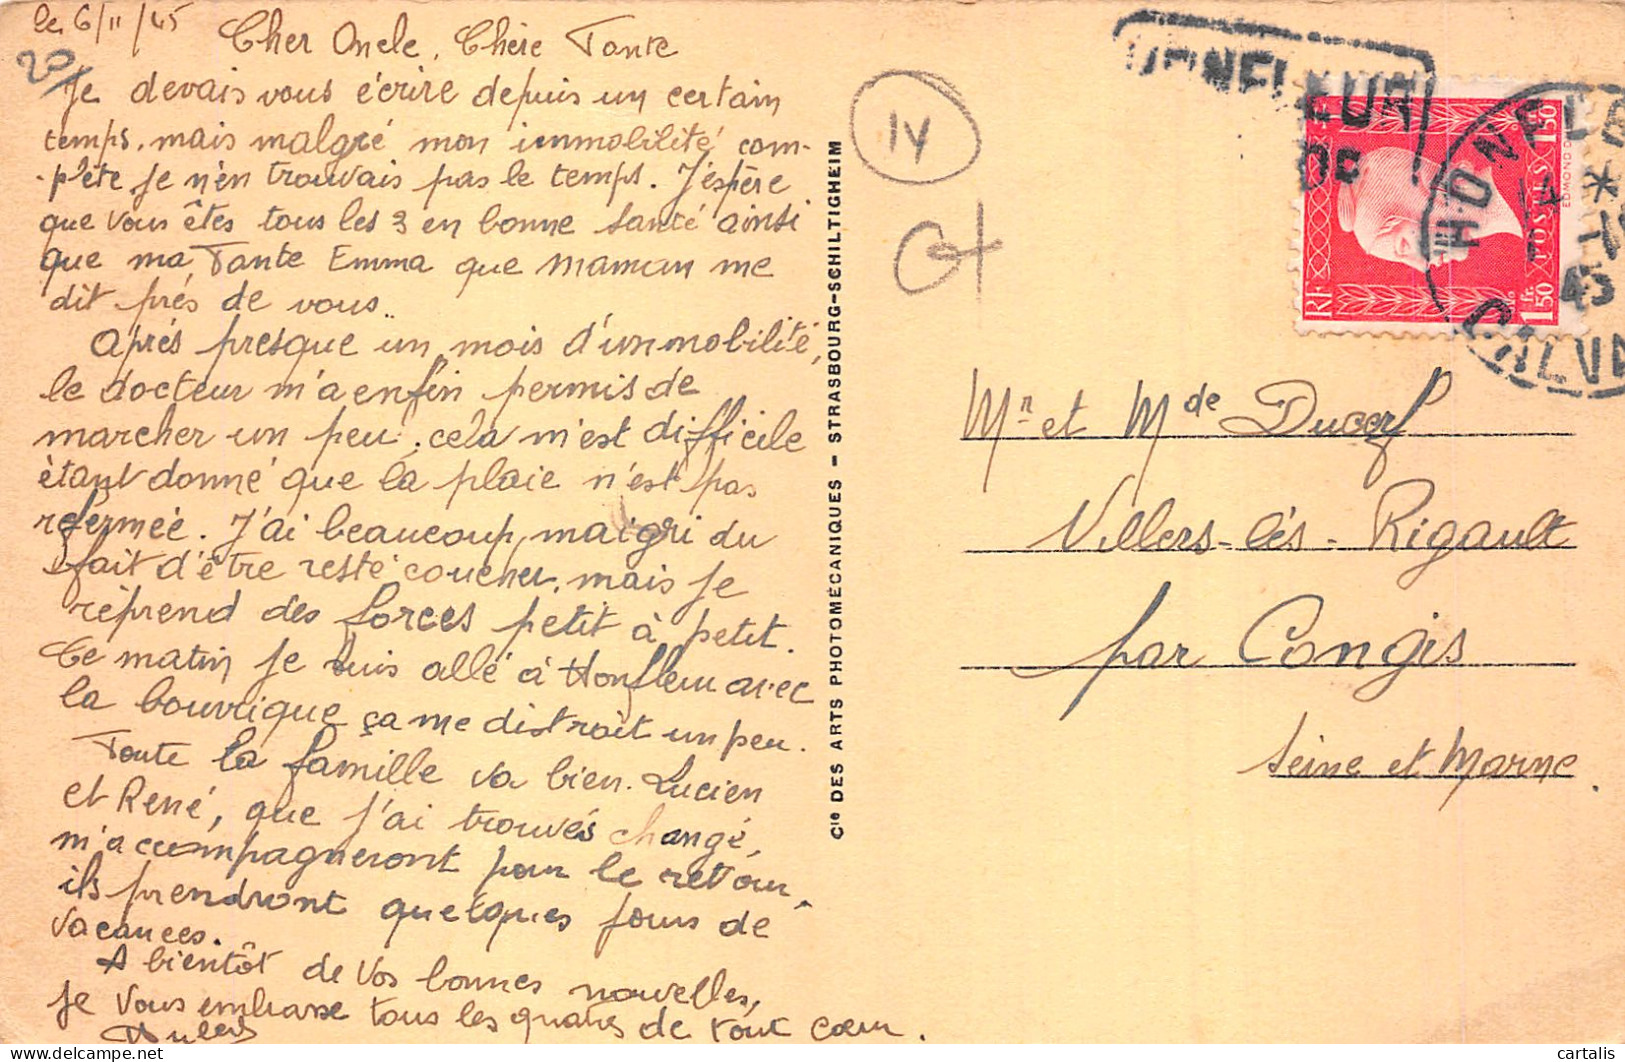 le 6/11/45
Cher Oncle, Chère Tante
Je devais vous écrire depuis un certain
temps, mais malgré mon immobilité com-
-plète je n'en trouvais pas le temps. J'espère
que vous êtes tous les 3 en bonne santé ainsi
que ma Tante Emma que maman me
dit près de vous..
Après presque un mois d'immobilité,
le docteur m'a enfin permis de
marcher un peu, cela m'est difficile
étant donné que la plaie n'est pas
refermée. J'ai beaucoup maigri du
fait d'être resté coucher, mais je
réprend des forces petit à petit.
Ce matin je suis allé à Honfleur avec
la bourrique ça me distrait un peu.
Toute la famille va bien. Lucien
et René, que j'ai trouvés changé,
m'accompagneront pour le retour,
ils prendront quelques jours de
vacances.
A bientôt de vos bonnes nouvelles,
je vous embrasse tous les quatres de tout cœur.
20
14
Cie DES ARTS PHOTOMÉCANIQUES - STRASBOURG-SCHILTIGHEIM
DE
HONFLE
14
45
CALVA
RF
1fr.50
POSTES
1.50
EDMOND D
Mr et Mde Ducorf
Villers-lés-Rigault
par Congis
Seine et Marne
cartalis